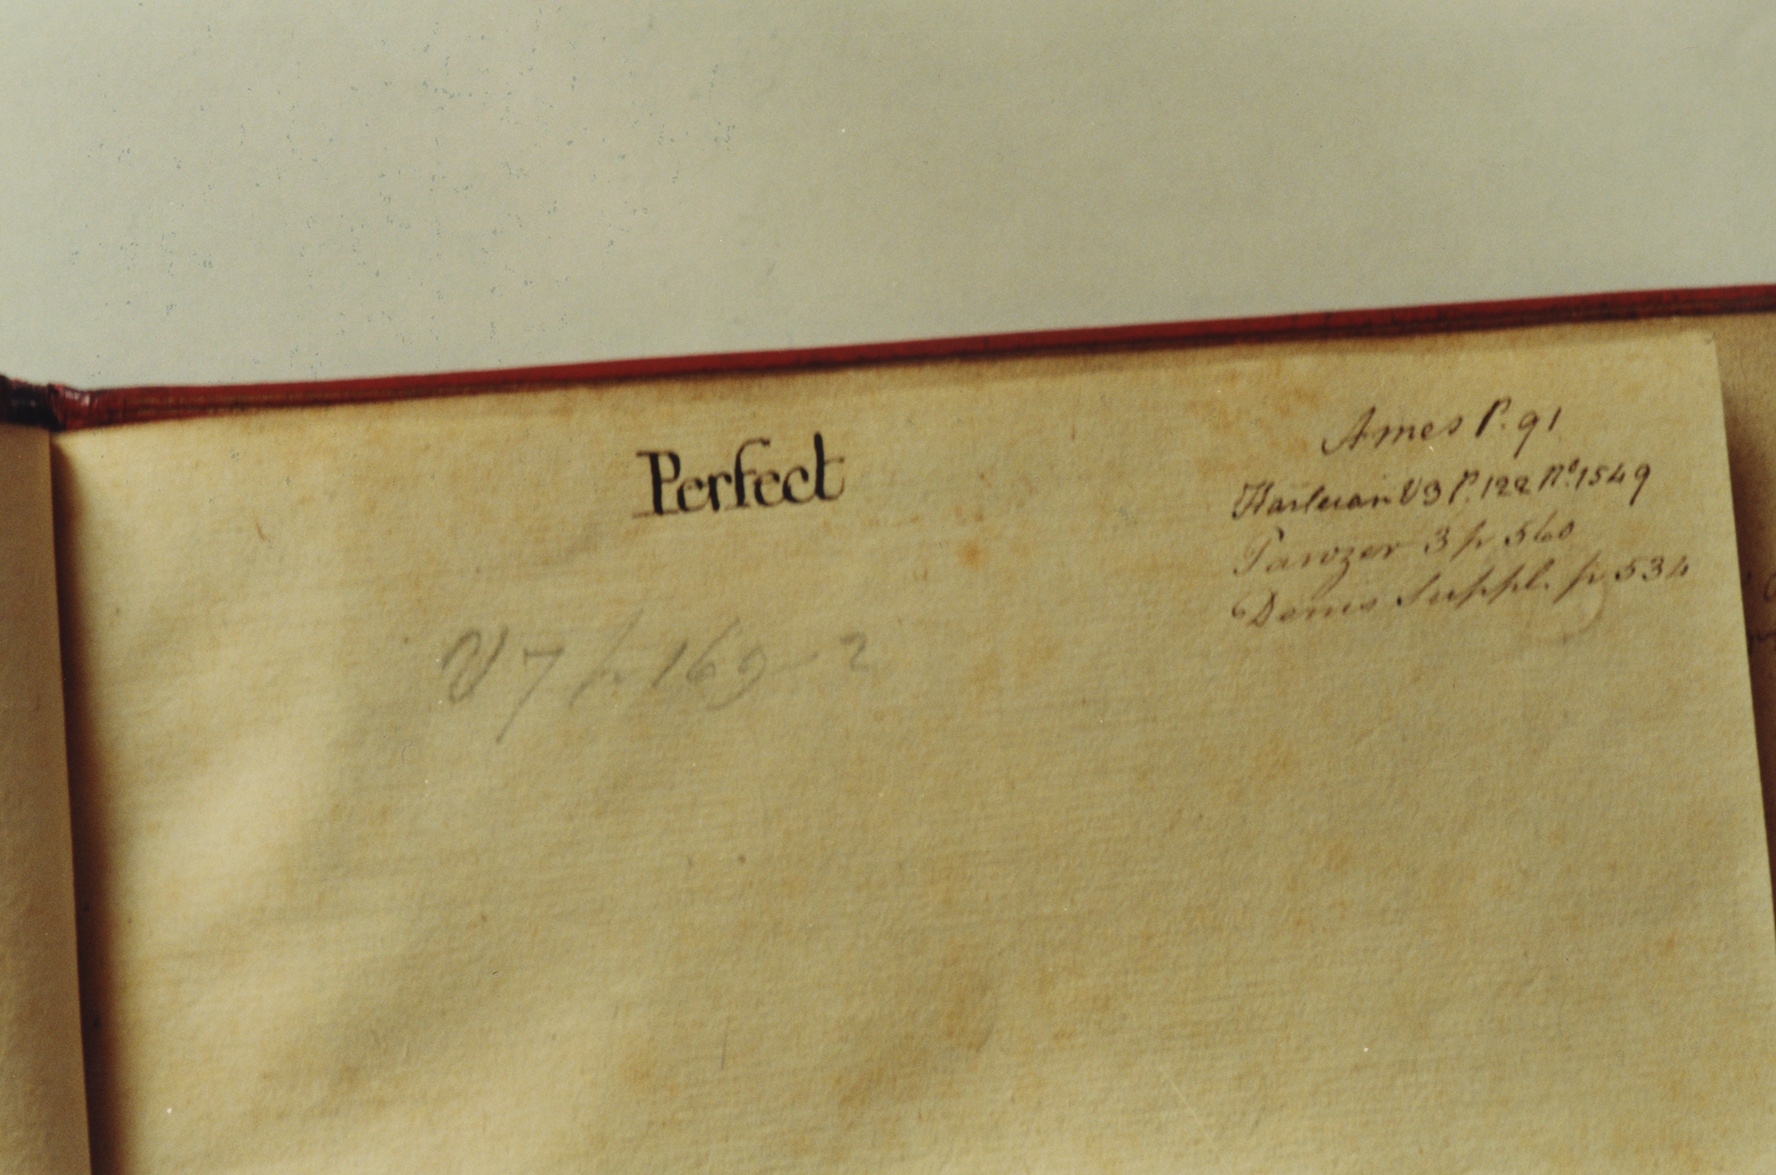 Perfect
Ames P. 91
Harleian V3 P. 122 No. 1549
Panzer 3 p 560
Denis Suppl. p 534
V 7 p 169 - 2